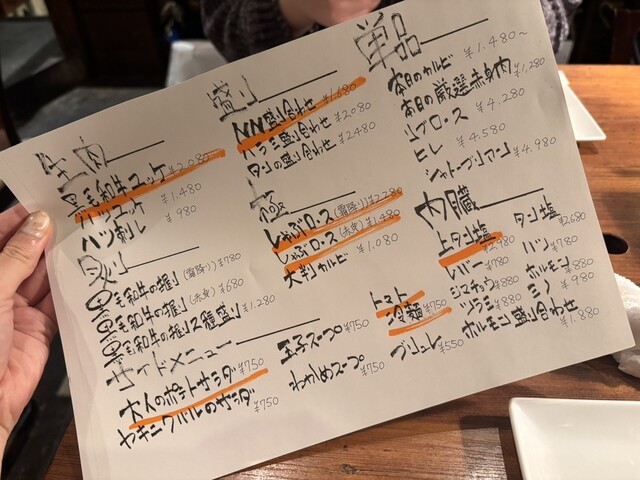 生肉
黒毛和牛ユッケ ¥2,080
ハツユッケ ¥1,480
ハツ刺し ¥980
握り
黒毛和牛の握り(霜降り) ¥780
黒毛和牛の握り(赤身) ¥680
黒毛和牛の握り2種盛り ¥1,280
サイドメニュー
大人のポテトサラダ ¥750
ヤキニクバルのサラダ ¥750
玉子スープ ¥750
わかめスープ ¥750
トマト冷麺 ¥750
ブリュレ ¥550
盛り
NN盛り合わせ ¥1,680
ハラミ盛り合わせ ¥2,080
タンの盛り合わせ ¥2,480
極
しゃぶロース(霜降り) ¥2,280
しゃぶロース(赤身) ¥1,480
大判カルビ ¥1,080
単品
本日のカルビ ¥1,480~
本日の厳選赤身肉 ¥1,280
リブロース ¥4,280
ヒレ ¥4,580
シャトーブリアン ¥4,980
内臓
上タン塩 ¥2,980
レバー ¥780
シマチョウ ¥880
ツラミ ¥880
ホルモン盛り合わせ ¥1,880
タン塩 ¥2,680
ハツ ¥780
ホルモン ¥880
ミノ ¥980